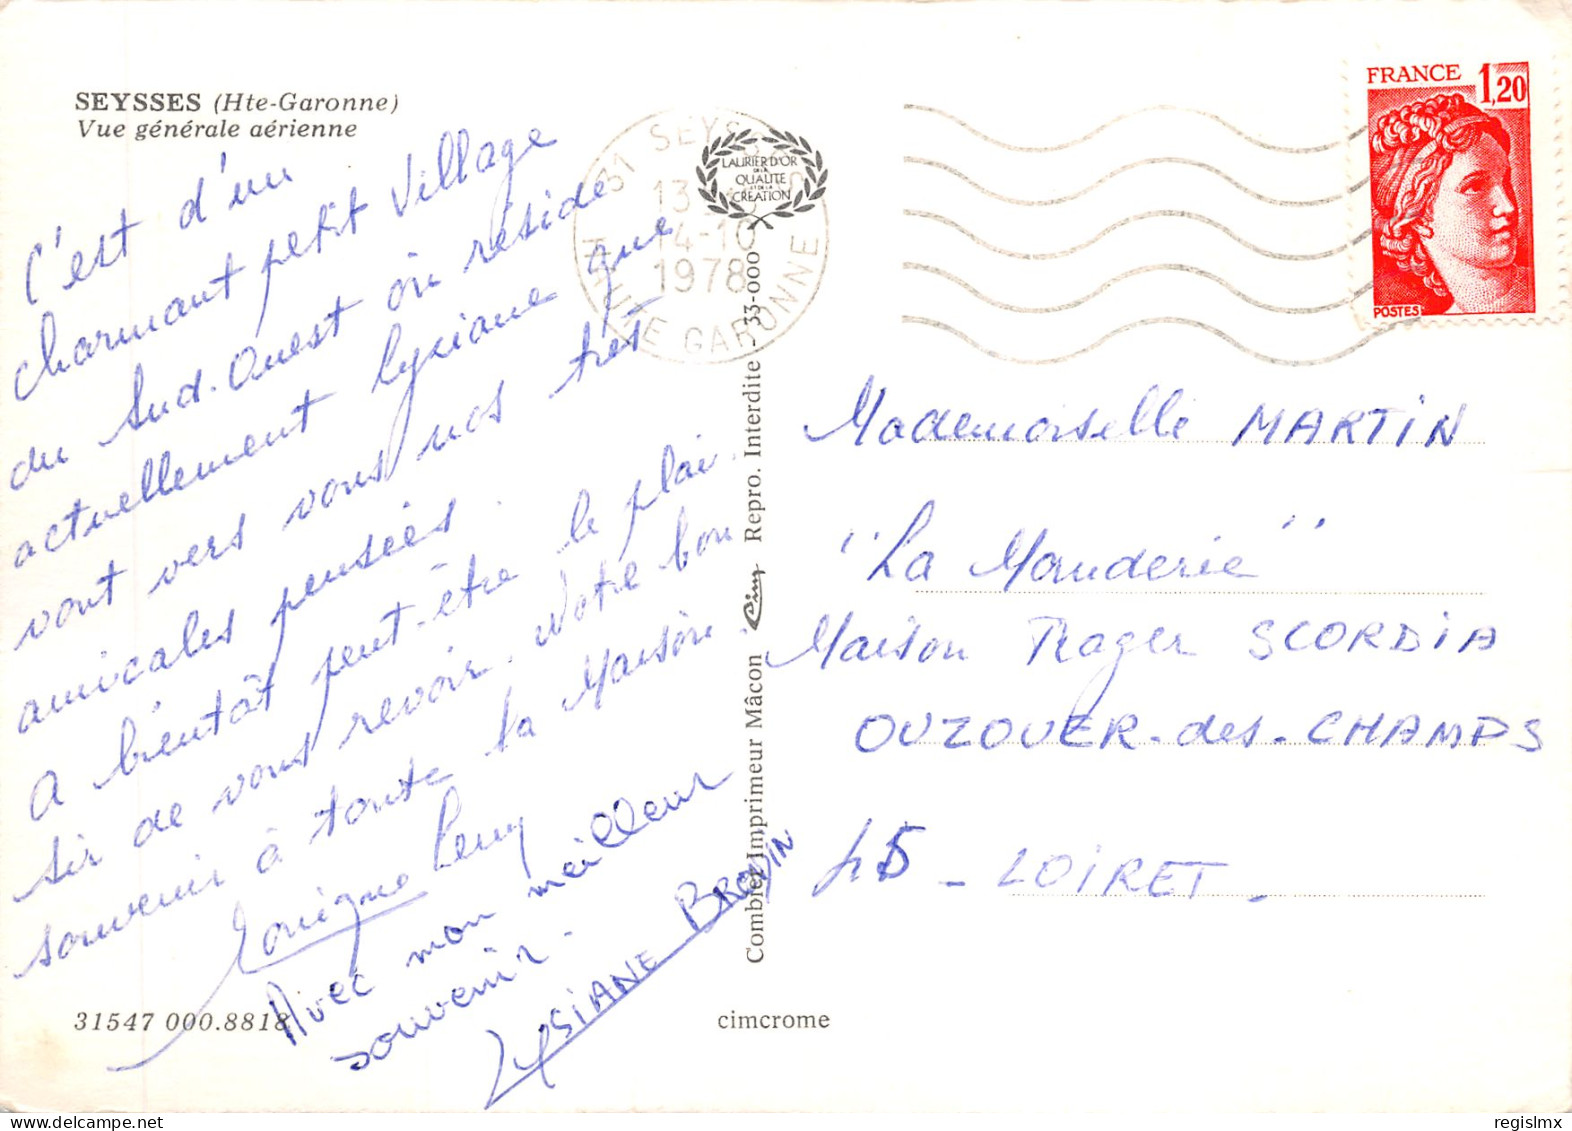 SEYSSES (Hte-Garonne)
Vue générale aérienne
C'est d'un
charmant petit village
du Sud-Ouest où réside
actuellement Lysiane que
vont vers vous nos très
amicales pensées.
A bientôt peut-être le plai-
sir de vous revoir. Notre bon
souvenir à toute la Maison.
Avec mon meilleur
souvenir.
LYSIANE BRODIN
31547 000.8818
cimcrome
31 SEYSSES
13
14-10
1978
HAUTE GARONNE
LAURIER D'OR
DE LA
QUALITE
ET DE LA
CREATION
Combier Imprimeur Mâcon Cim Repro. Interdite 33-000
FRANCE 1,20
POSTES
Mademoiselle MARTIN
"La Manderie"
Maison Roger SCORDIA
OUZOUER-des-CHAMPS
45 - LOIRET -
delcampe.net
regislmx